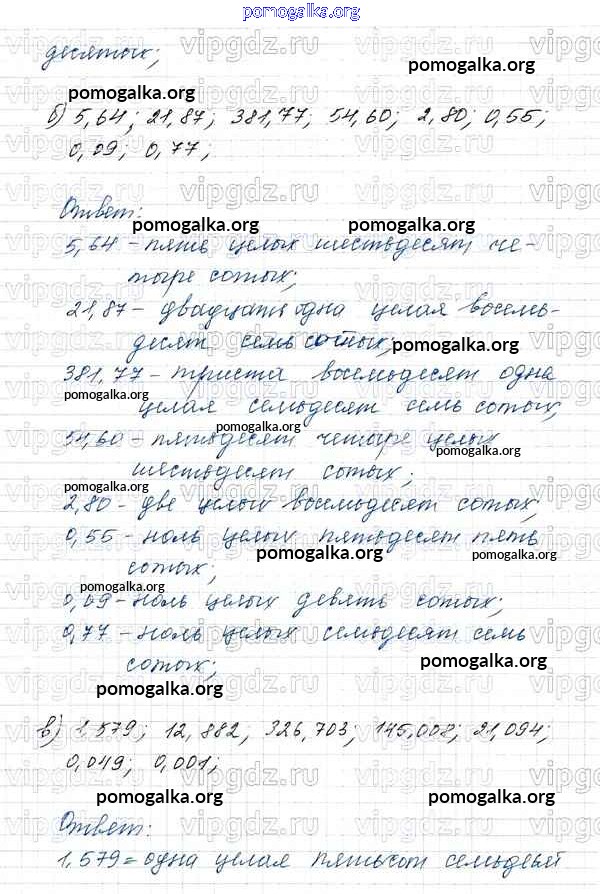 pomogalka.org
десятых;
pomogalka.org
pomogalka.org
б) 5,64; 21,87; 381,77; 54,60; 2,80; 0,55;
0,09; 0,77;
Ответ:
pomogalka.org
pomogalka.org
5,64 - пять целых шестьдесят че-
тыре сотых;
21,87 - двадцать одна целая восемь-
десят семь сотых;
pomogalka.org
381,77 - триста восемьдесят одна
pomogalka.org
целая семьдесят семь сотых;
pomogalka.org
54,60 - пятьдесят четыре целых
шестьдесят сотых;
pomogalka.org
2,80 - две целых восемьдесят сотых;
0,55 - ноль целых пятьдесят пять
pomogalka.org
pomogalka.org
сотых;
pomogalka.org
0,09 - ноль целых девять сотых;
0,77 - ноль целых семьдесят семь
сотых;
pomogalka.org
pomogalka.org
в) 1,579; 12,882, 326,703; 145,008; 21,094;
0,049; 0,001;
pomogalka.org
pomogalka.org
Ответ:
1,579 = одна целая пятьсот семьдеят